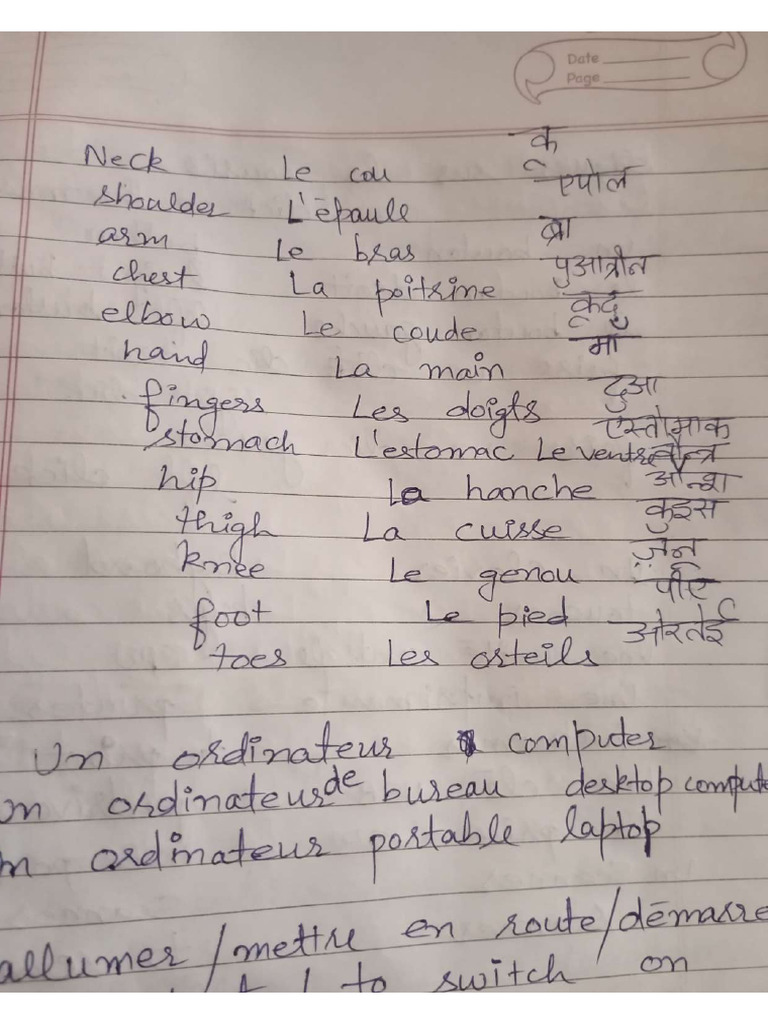 Date
Page
Neck Le cou कू
shoulder L'épaule एपोल
arm Le bras ब्रा
chest La poitrine पुआत्रीन
elbow Le coude कूदु
hand La main माँ
fingers Les doigts दुआ
stomach L'estomac Le ventre एस्तोमाक वेन्त्र
hip La hanche ओन्श
thigh La cuisse कुइस
knee Le genou ज़नू
foot Le pied पीए
toes Les orteils ओरतेई
Un ordinateur computer
un ordinateur de bureau desktop compute
n ordinateur portable laptop
allumer/mettre en route/démarre
to switch on